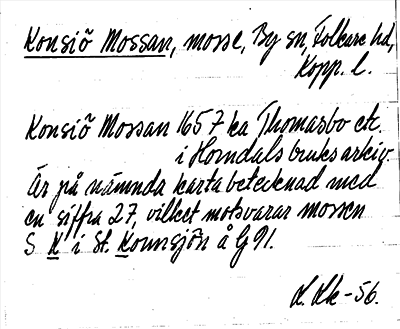 Konsiö Mossan, mosse, By sn, Folkare hd,
Kopp. l.
Konsiö Mossan 1657 ka Thomasbo etc.
i Horndals bruksarkiv.
Är på nämnda karta betecknad med
en siffra 27, vilket motsvarar mossen
S K i St. Konnsjön å G 91.